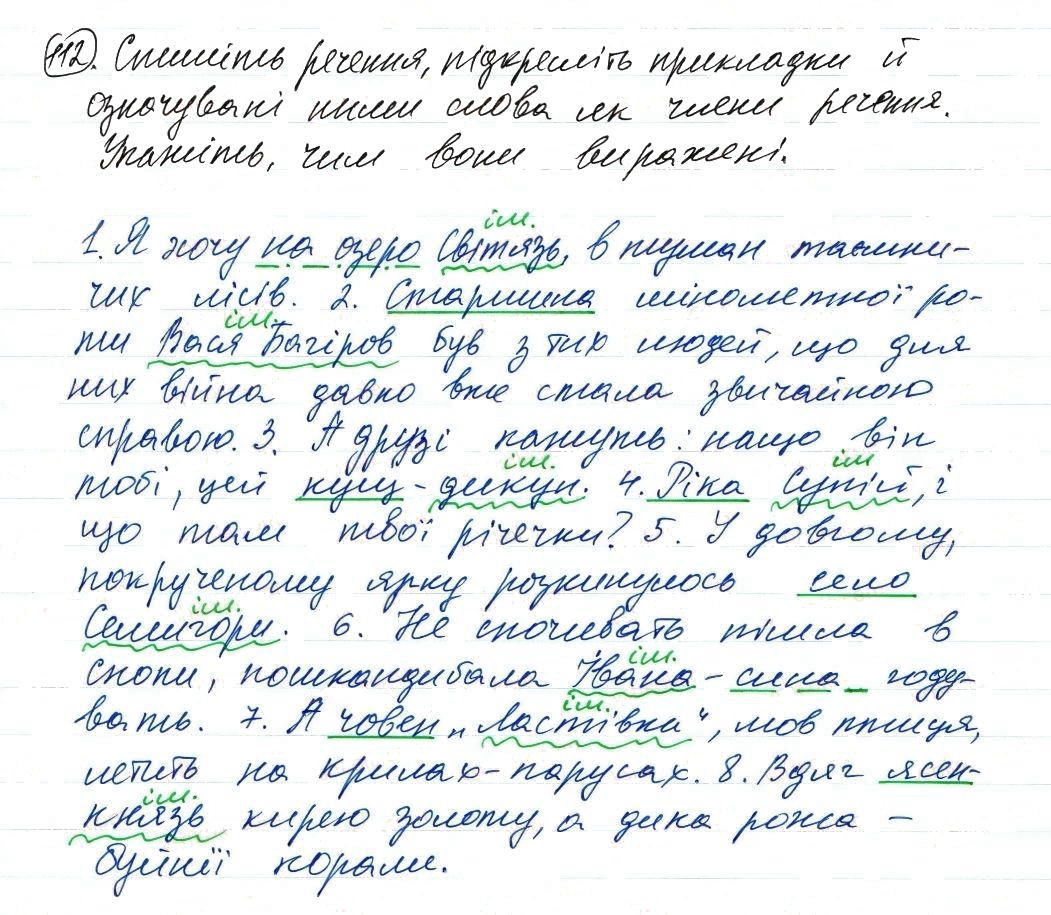 112. Спишіть речення, підкресліть прикладки й
означувані ними слова як члени речення.
Укажіть, чим вони виражені.
ім.
1. Я хочу на озеро Світязь, в туман таємни-
чих лісів. 2. Старшина мінометної ро-
ім.
ти Вася Багіров був з тих людей, що для
них війна давно вже стала звичайною
справою. 3. А друзі кажуть: нащо він
ім. ім
тобі, цей кущ-дикун. 4. Ріка Супій, і
що там твої річечки? 5. У довгому,
покрученому ярку розкинулось село
ім.
Семигори. 6. Не спочивать пішла в
ім.
снопи, пошкандибала Йвана-сина году-
ім.
вать. 7. А човен „Ластівка", мов птиця,
летить на крилах-парусах. 8. Вдяг ясен-
ім.
князь кирею золоту, а дика рожа –
буйнії корали.